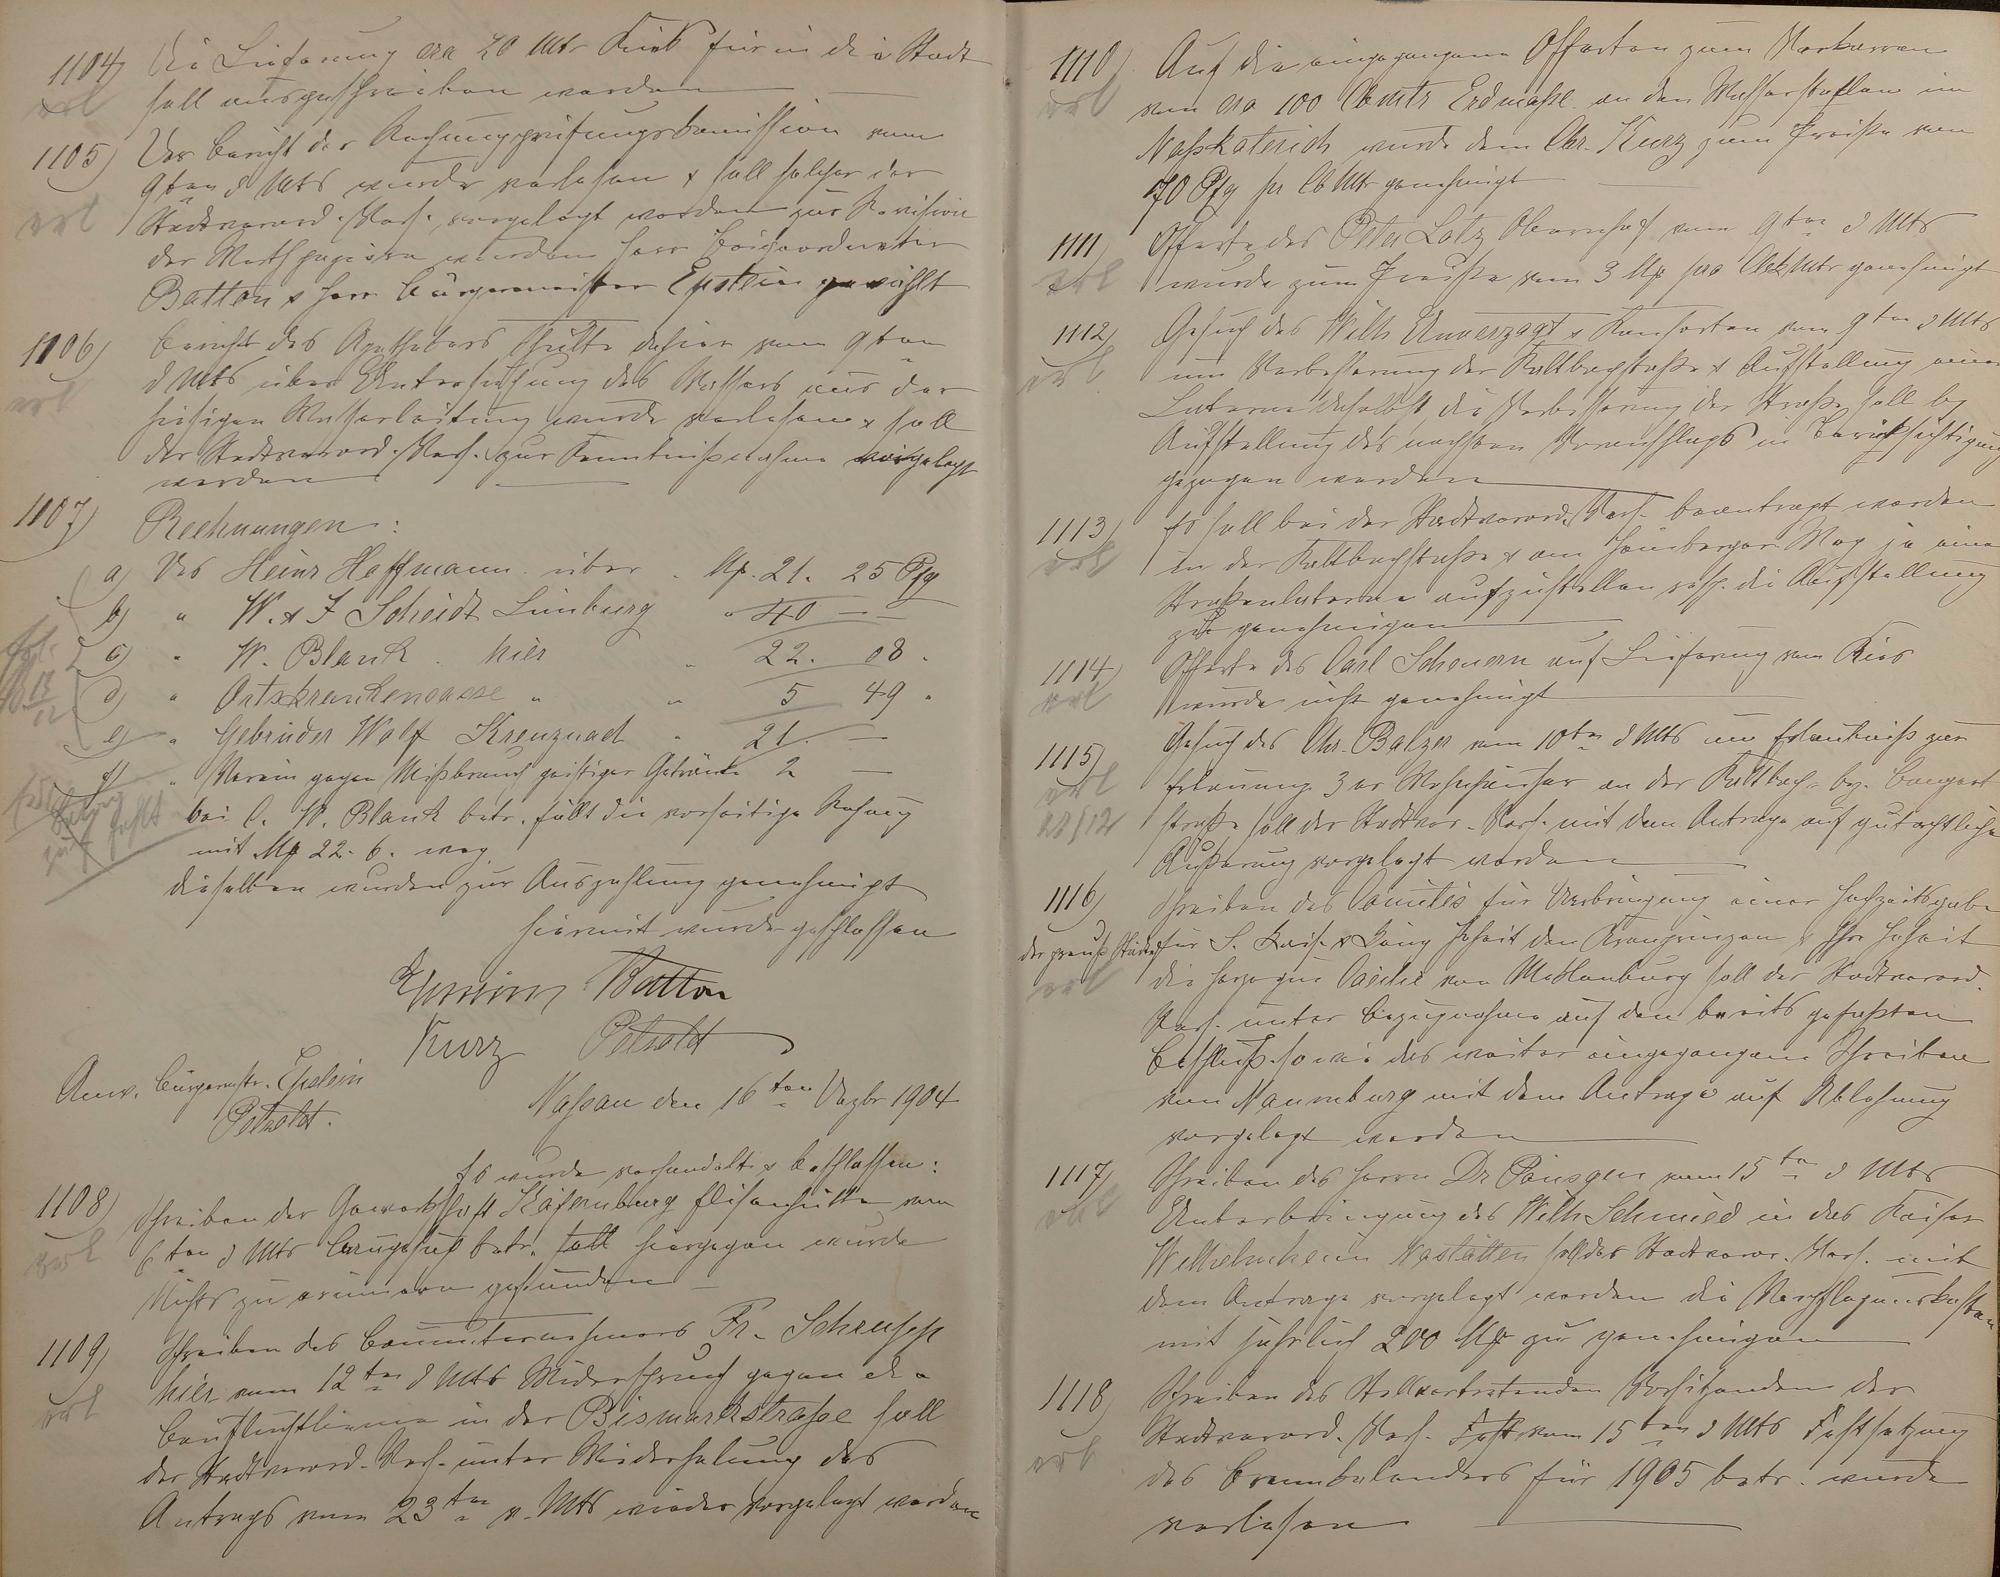 1104) Die Lieferung von 20 Mtr Kies für in die Stadt
erl
soll ausgeschrieben werden
1105) Der Bericht der Rechnungsprüfungskomission vom
9ten d Mts wurde verlesen & soll solcher der
erl
Stadtverord. Vers. vorgelegt werden zur Revision
der Werthpapiere wurden Herr Beigeordneter
Batton & Herr Bürgermeister Epstein gewählt
1106) Bericht des Apothekers dahier vom 9ten
d Mts über Untersuchung des Wassers aus der
erl
hiesigen Wasserleitung wurde verlesen & soll
der Stadtverord. Vers. zur Kenntnißnahme vorgelegt
werden
1107) Rechnungen:
a) Des Heinr Hoffmann über Mk. 21. 25 Pfg
b) " W. & J Scheidt Limburg " 40 —
c) " W. Blank hier " 22. 08 "
d) " Ortskrankencasse " " 5 49 "
e) " Gebrüder Wolf Kreuznach " 21. —
f) " Verein gegen Mißbrauch geistiger Getränke 2 —
bei C. W. Blank betr. fällt die vorseitige Rechnung
mit Mk 22. 6. weg
dieselben wurden zur Auszahlung genehmigt
hiermit wurde geschlossen
Epstein Batton
Kurz Petzoldt
Anw. Bürgermstr. Epstein
Petzoldt.
Nassau den 16ten Dezbr 1904
Es wurde verhandelt & beschlossen:
1108) Schreiben der Gewerkschaft Käfernburg Elisenhütte vom
6ten d Mts Baugesuch betr. soll hiergegen wurde
erl
Nichts zu erinnern gefunden
1109) Schreiben des Bauunternehmers Fr. Scheupp
hier vom 12ten d Mts Widerspruch gegen die
erl
Baufluchtlinie in der Bismarkstraße soll
der Stadtverord. Vers. unter Wiederholung des
Antrags vom 23ten v. Mts wieder vorgelegt werden
1110) Auf die eingegangene Offerten zum
erl
von cra 100 Cbmtr Erdmaße an den im
wurde dem Chr. Kurz zum Preiße von
70 Pfg pr Cb Mtr genehmigt
1111) Offerte des Peter Lotz Obernhof vom 9ten d Mts
erl
wurde zum Preiße von 3 Mk pro Mtr genehmigt
1112) Gesuch des Wilh Unverzagt & Konsorten vom 9ten d Mts
erl
um Verbesserung der Kaltbachstraße & Aufstellung einer
Laterne daselbst die Verbesserung der Straße soll by
Aufstellung des nächsten Voranschlags in Berücksichtigung
gezogen werden
1113) Es soll bei der Stadtverord. Vers. beantragt werden
erl
in der Kaltbachstraße & am Hömberger Weg je eine
Straßenlaterne aufzustellen resp. die Aufstellung
zu genehmigen
1114) Offerte des Carl Scheuern auf Lieferung von Kies
erl
wurde nicht genehmigt
1115) Gesuch des Chr. Balzer vom 10ten d Mts um Erlaubniß zur
erl
Erbauung 3 er Wohnhäuser an der Kaltbach- bz. Bongert
straße soll der Stadtver. Vers. mit dem Antrage auf gutachtliche
Äußerung vorgelegt werden
1116) Schreiben des Comités für Überbringung einer Hochzeitsgabe
der preuß Städte für S. Kais. & König Hoheit den Kronprinzen & Ihre Hoheit
erl
die Herzogin Cäcilie von Meklenburg soll der Stadtverord.
Vers. unter Bezugnahme auf den bereits gefaßten
Beschluß sowie des weiter eingegangene Schreiben
von Naumburg mit dem Antrage auf Ablehnung
vorgelegt werden
1117) Schreiben des Herrn Dr Poensgen vom 15ten d Mts
erl
Unterbringung des Wilh Schmied in das Kaiser
Wilhelmheim Nastätten soll der Stadtverord. Vers. mit
dem Antrage vorgelegt werden die Verpflegungskosten
mit jährlich 200 Mk zu genehmigen
1118) Schreiben des Stellvertretenden Vorsitzenden der
Stadtverord. Vers. vom 15ten d Mts Festsetzung
erl
des Brennkalenders für 1905 betr. wurde
verlesen